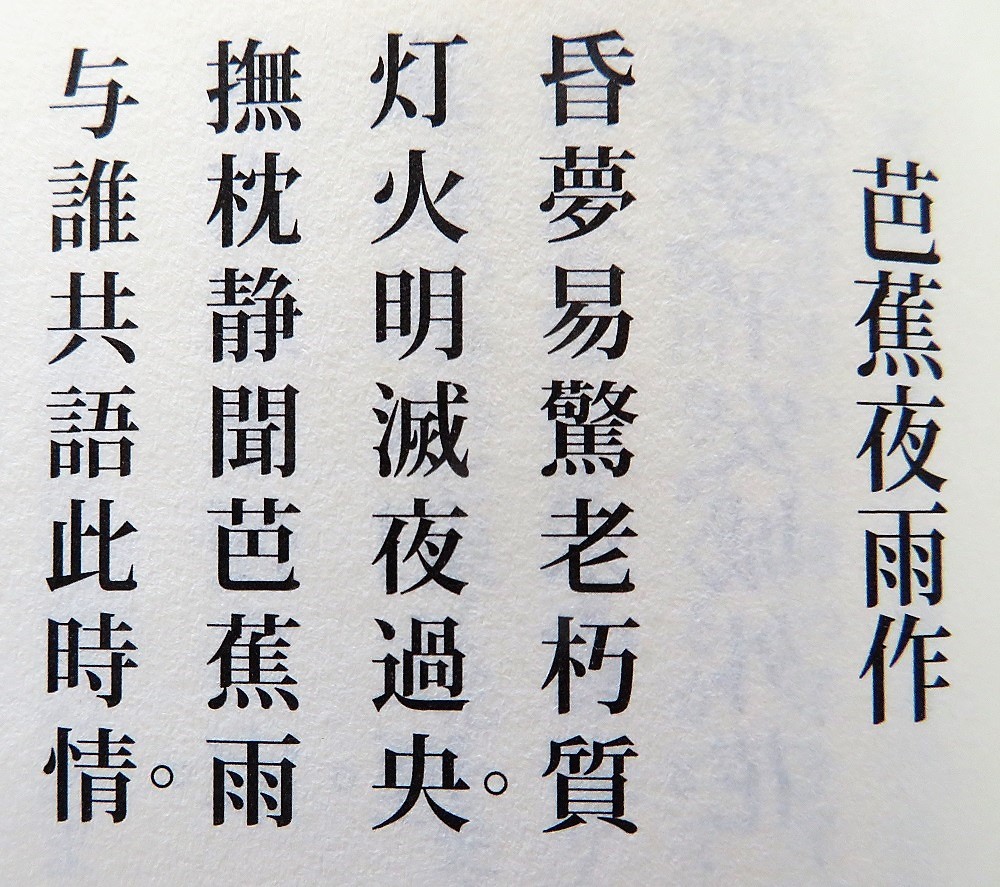 芭蕉夜雨作
昏夢易驚老朽質
灯火明滅夜過央。
撫枕静聞芭蕉雨
与誰共語此時情。